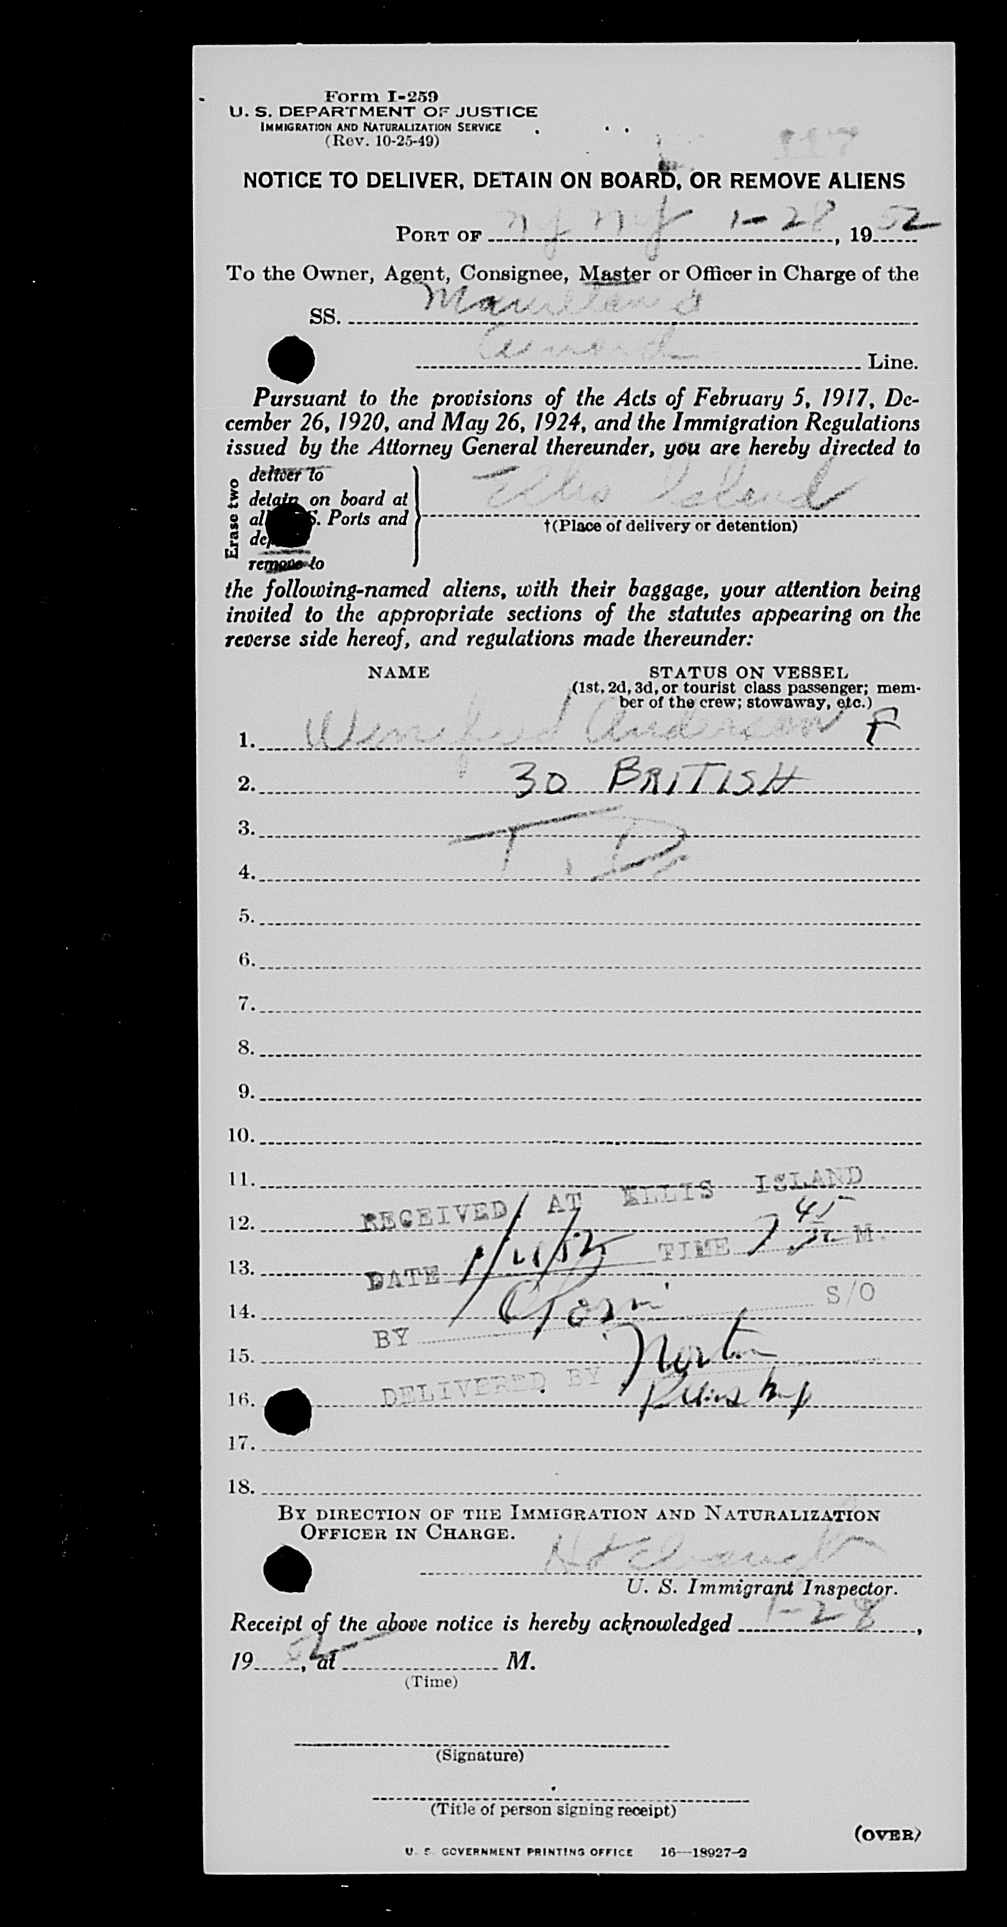 Form I-259
U. S. DEPARTMENT OF JUSTICE
IMMIGRATION AND NATURALIZATION SERVICE
(Rev. 10-25-49)
117
NOTICE TO DELIVER, DETAIN ON BOARD, OR REMOVE ALIENS
PORT OF NY NY 1-28, 1952
To the Owner, Agent, Consignee, Master or Officer in Charge of the
SS. Mauretania
Cunard Line.
Pursuant to the provisions of the Acts of February 5, 1917, De-
cember 26, 1920, and May 26, 1924, and the Immigration Regulations
issued by the Attorney General thereunder, you are hereby directed to
Erase two
deliver to
detain on board at
all S. Ports and
remove to
Ellis Island
†(Place of delivery or detention)
the following-named aliens, with their baggage, your attention being
invited to the appropriate sections of the statutes appearing on the
reverse side hereof, and regulations made thereunder:
NAME STATUS ON VESSEL
(1st, 2d, 3d, or tourist class passenger; mem-
ber of the crew; stowaway, etc.)
1. Winifred Anderson F
2. 30 BRITISH
3. T. D.
4.
5.
6.
7.
8.
9.
10.
11.
12.
13.
14.
15.
16.
17.
18.
RECEIVED AT ELLIS ISLAND
DATE TIME 7 45 M.
BY S/O
DELIVERED BY Norton
BY DIRECTION OF THE IMMIGRATION AND NATURALIZATION
OFFICER IN CHARGE.
U. S. Immigrant Inspector.
Receipt of the above notice is hereby acknowledged 1-28,
1952, at M.
(Time)
(Signature)
(Title of person signing receipt)
(OVER)
U. S. GOVERNMENT PRINTING OFFICE 16—18927-2